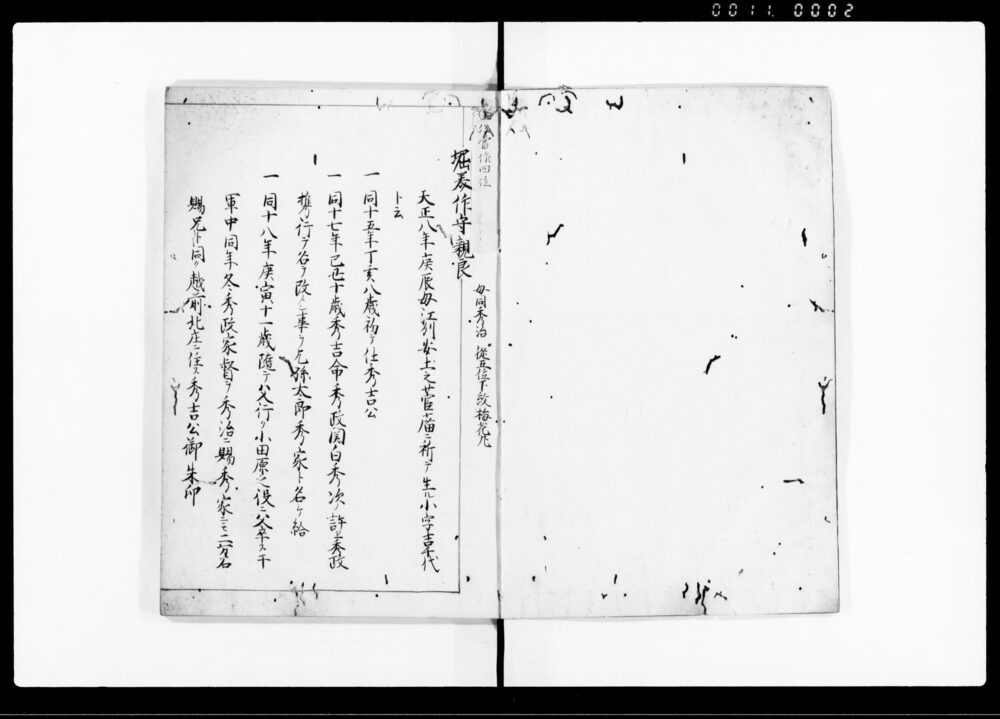 0011 0002
堀美作守親良
母同秀治 従五位下紋梅花九
天正八年庚辰母江列安土之菅庿ニ祈テ生ル小字吉千代
ト云
一 同十五年丁亥八歳初テ仕秀吉公
一 同十七年己丑十歳秀吉命秀政関白秀次ノ許エ秀政
携行テ名ヲ改ム事ヲ乞孫太郎秀家ト名ケ給
一 同十八年庚寅十一歳随テ父行ク小田原之役ニ父卒ス于
軍中同年冬秀政家督ヲ秀治ニ賜秀家ニモ二万石
賜兄ト同ク越前北庄ニ住ス秀吉公御朱印